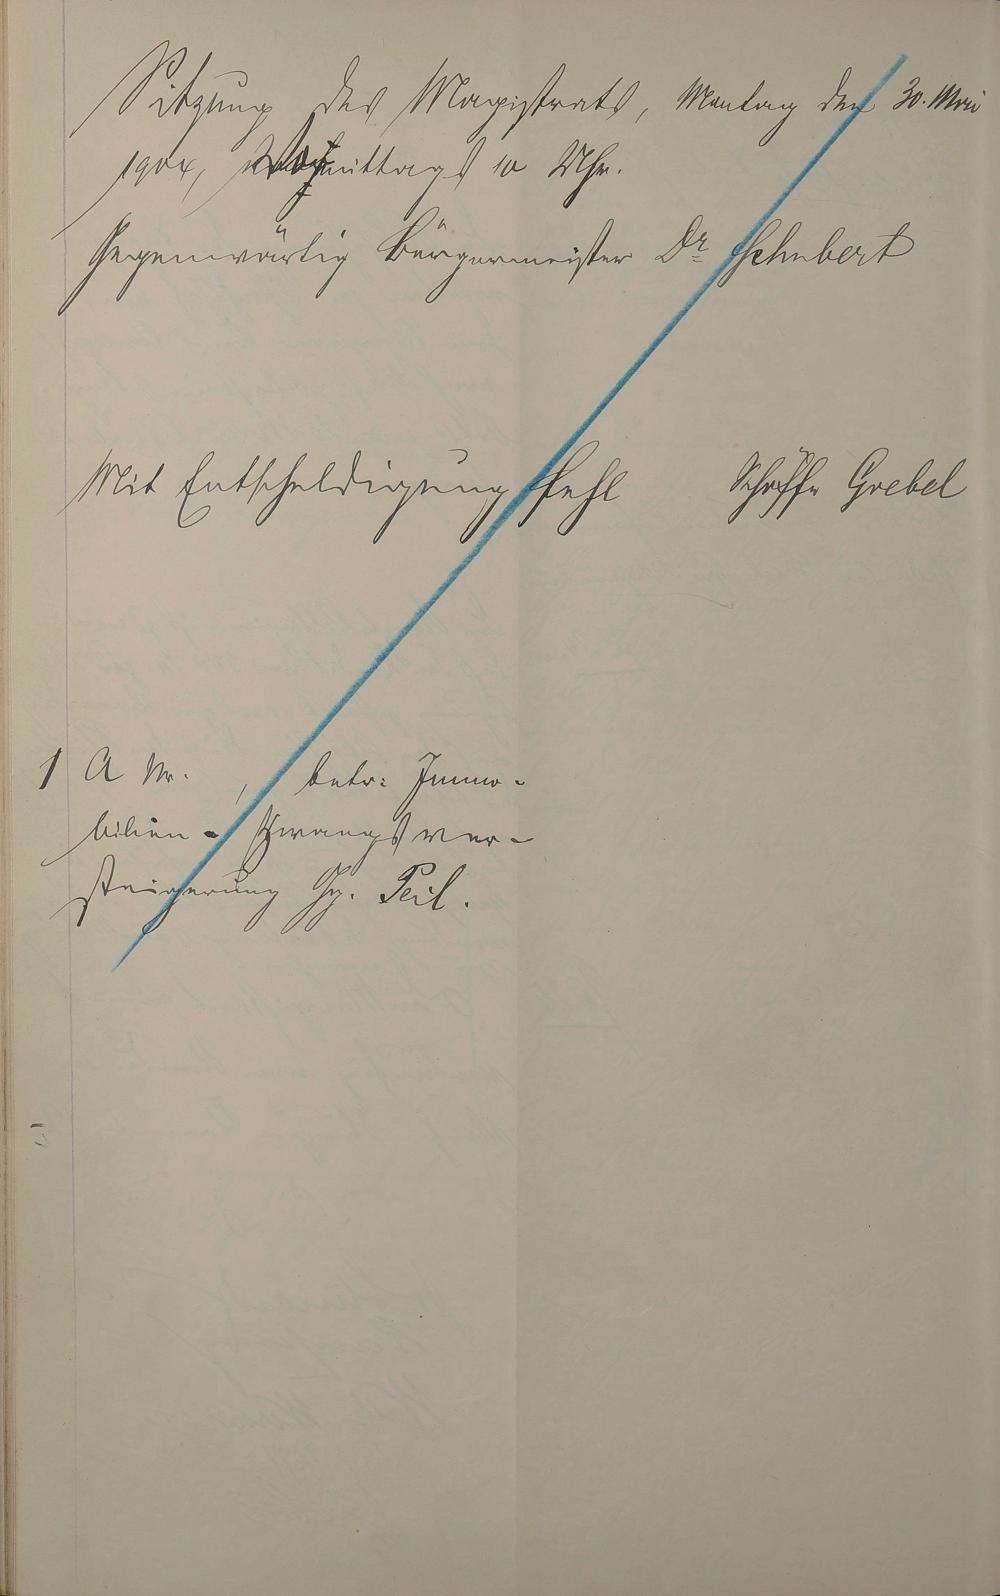 Sitzung des Magistrats, Montag den 30. Mai
1904, Vormittags 10 Uhr.
Gegenwärtig Bürgermeister Dr Schubert
Mit Entschuldigung fehl Schöffe Grebel
1 A Nr. , betr: Immo-
bilien - Zwangsver-
steigerung Gg. Peil.